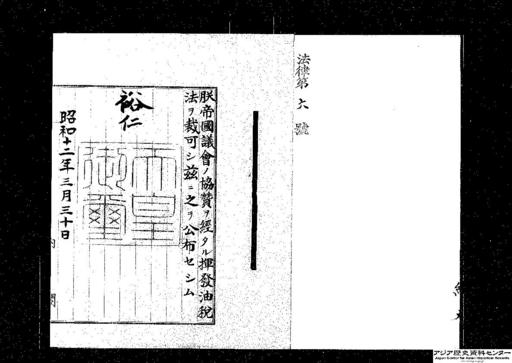 法律第六號
朕帝國議會ノ協贊ヲ經タル揮發油稅
法ヲ裁可シ茲ニ之ヲ公布セシム
裕仁
天皇御璽
昭和十二年三月三十日
内閣
アジア歴史資料センター
Japan Center for Asian Historical Records